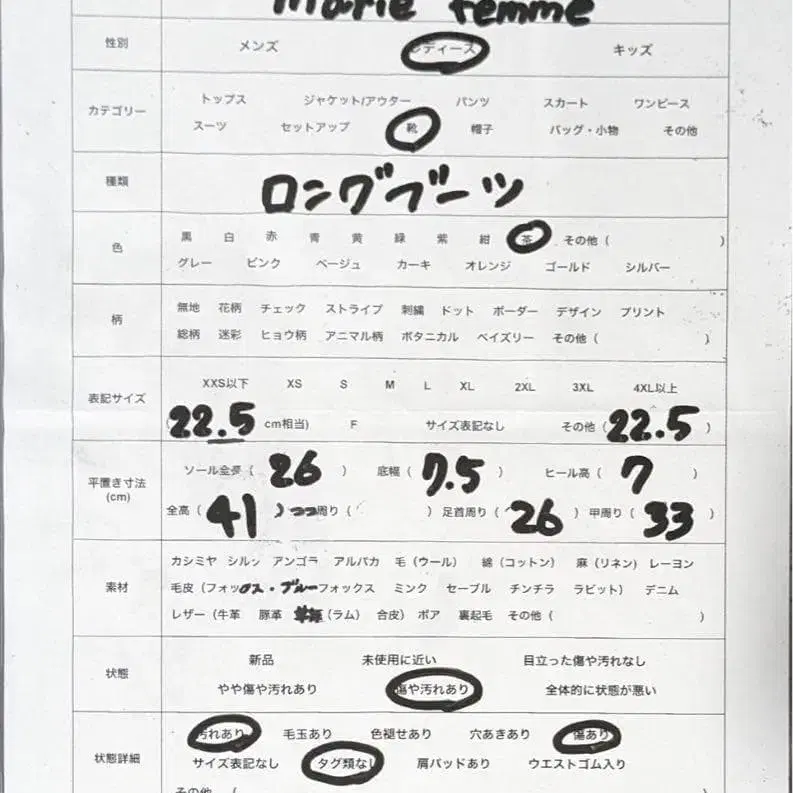 Marie femme
性別 メンズ レディース キッズ
カテゴリー トップス ジャケット/アウター パンツ スカート ワンピース
スーツ セットアップ 靴 帽子 バッグ・小物 その他
種類 ロングブーツ
色 黒 白 赤 青 黄 緑 紫 紺 茶 その他 ( )
グレー ピンク ベージュ カーキ オレンジ ゴールド シルバー
柄 無地 花柄 チェック ストライプ 刺繍 ドット ボーダー デザイン プリント
総柄 迷彩 ヒョウ柄 アニマル柄 ボタニカル ペイズリー その他 ( )
表記サイズ XXS以下 XS S M L XL 2XL 3XL 4XL以上
(22.5 cm相当) F サイズ表記なし その他 (22.5)
平置き寸法 (cm) ソール全長 (26) 底幅 (7.5) ヒール高 (7)
全高 (41) 周り ( ) 足首周り (26) 甲周り (33)
素材 カシミヤ シルク アンゴラ アルパカ 毛 (ウール) 綿 (コットン) 麻 (リネン) レーヨン
毛皮 (フォックス・ブルーフォックス ミンク セーブル チンチラ ラビット) デニム
レザー (牛革 豚革 (ラム) 合皮) ボア 裏起毛 その他 ( )
状態 新品 未使用に近い 目立った傷や汚れなし
やや傷や汚れあり 傷や汚れあり 全体的に状態が悪い
状態詳細 汚れあり 毛玉あり 色褪せあり 穴あきあり 傷あり
サイズ表記なし タグ類なし 肩パッドあり ウエストゴム入り
その他 (